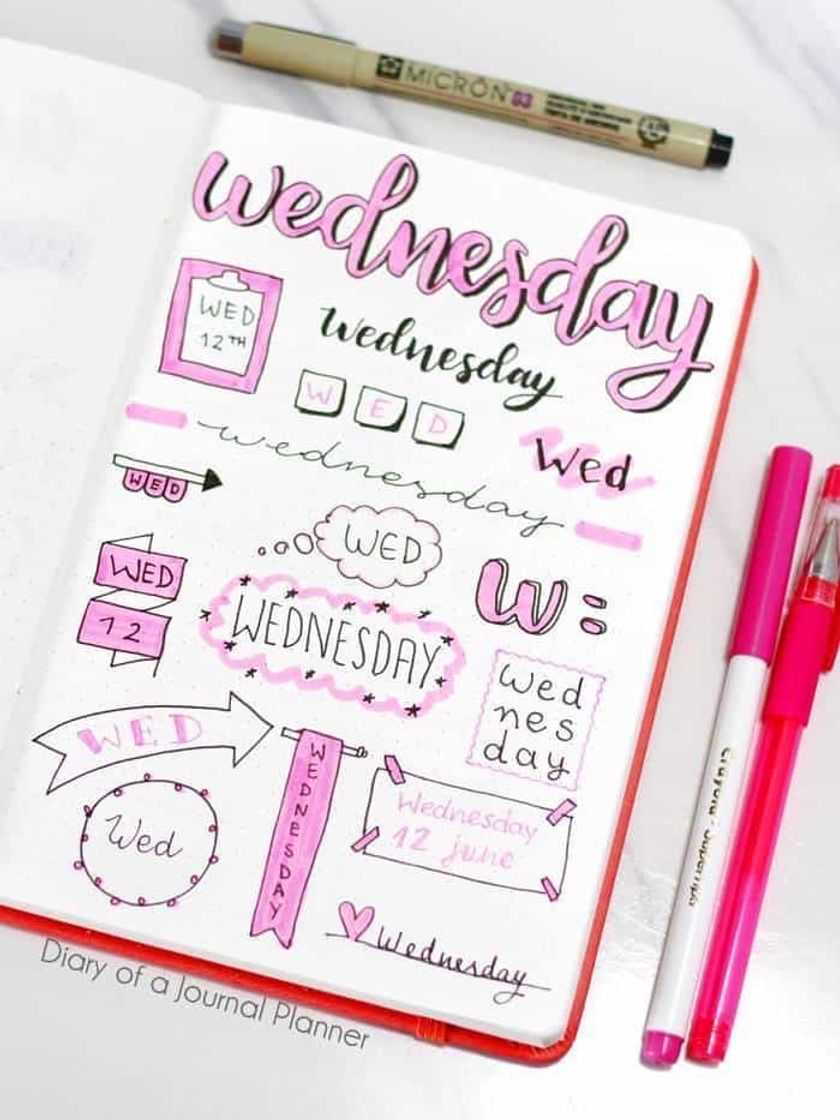 MICRON 03
wednesday
WED
12TH
Wednesday
W E D
Wed
wednesday
WED
WED
WED
12
W:
WEDNESDAY
Wed
nes
day
WED
WEDNESDAY
Wednesday
12 june
Wed
Wednesday
Crayola Supertips
Diary of a Journal Planner